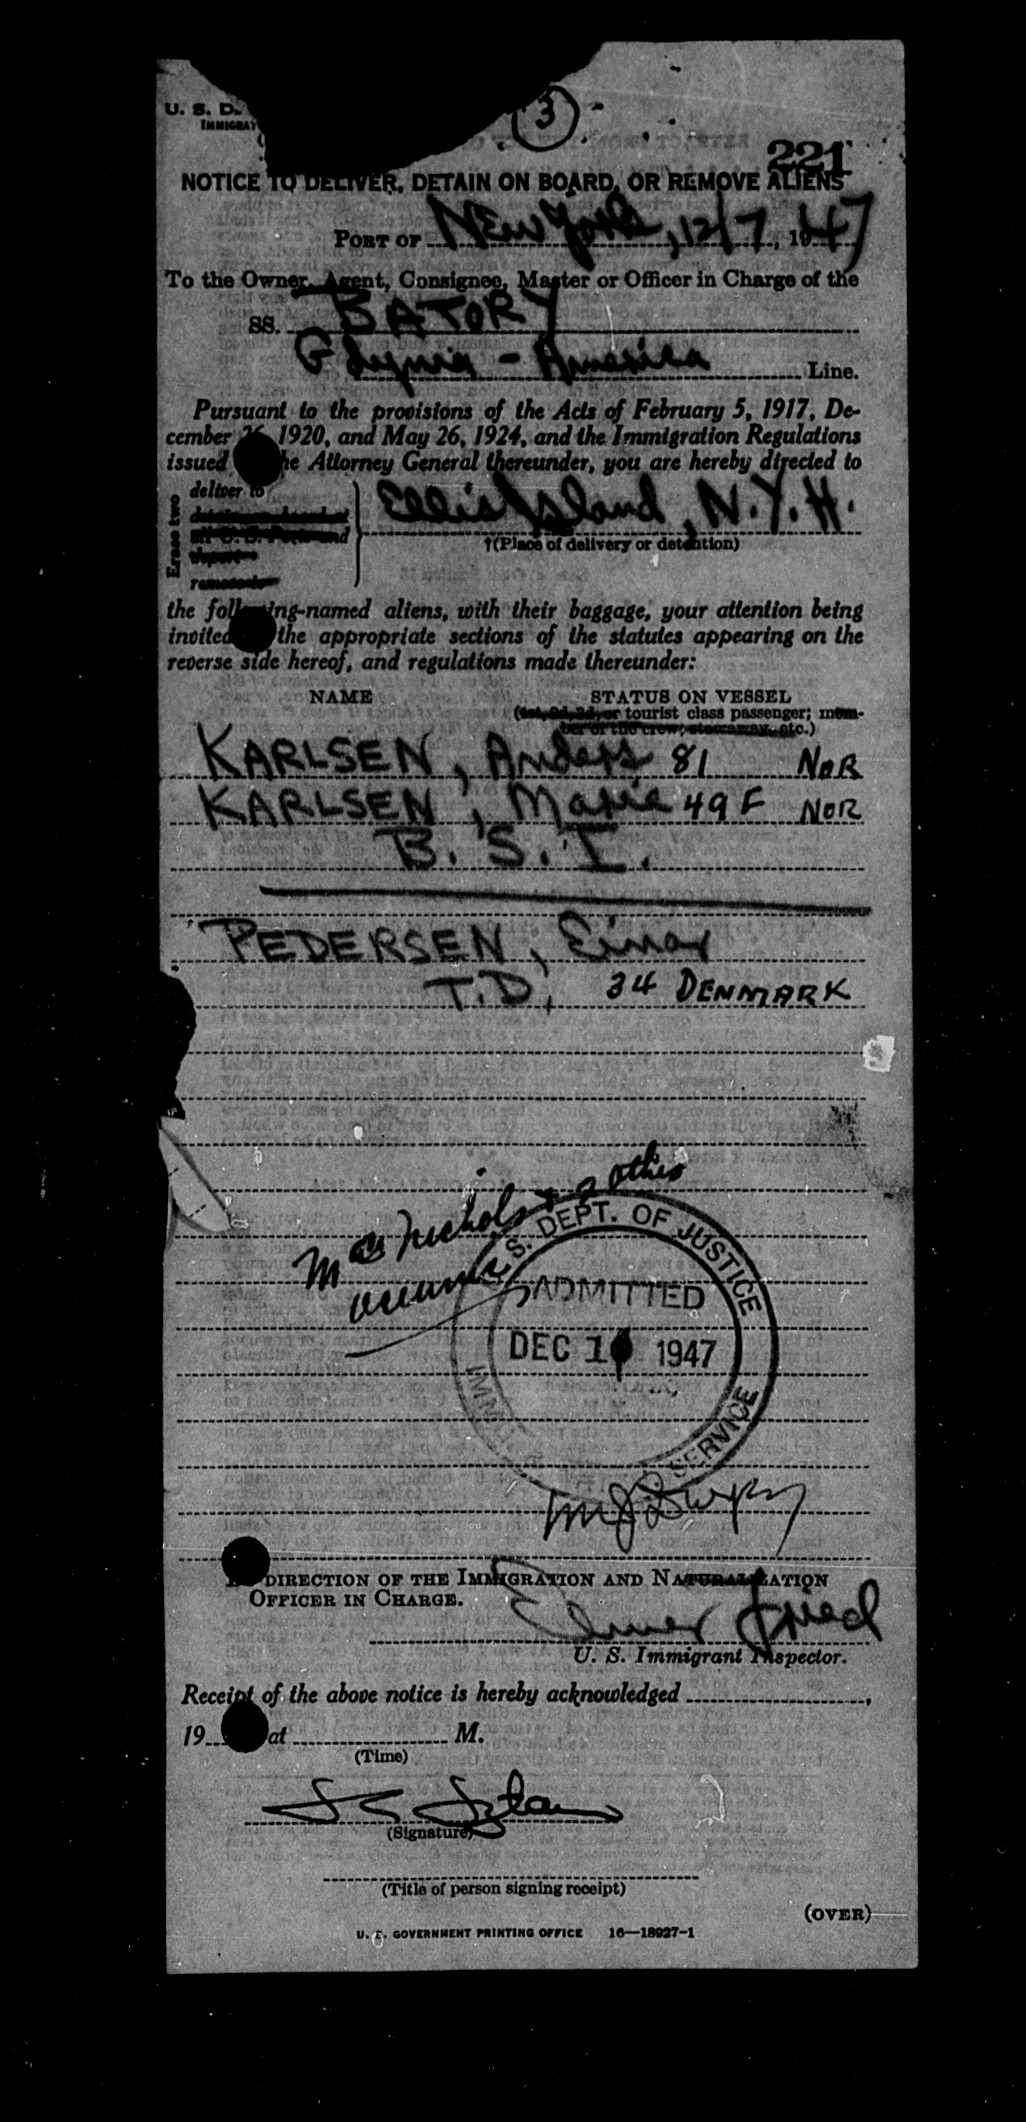 3
U. S. D.
IMMIGRAT
221
NOTICE TO DELIVER, DETAIN ON BOARD, OR REMOVE ALIENS
PORT OF New York, 12/7, 1947
To the Owner, Agent, Consignee, Master or Officer in Charge of the
SS. BATORY
Gdynia - America Line.
Pursuant to the provisions of the Acts of February 5, 1917, De-
cember 26, 1920, and May 26, 1924, and the Immigration Regulations
issued he Attorney General thereunder, you are hereby directed to
Erase two
deliver to
Ellis Island, N.Y.H.
†(Place of delivery or detention)
the following-named aliens, with their baggage, your attention being
invited the appropriate sections of the statutes appearing on the
reverse side hereof, and regulations made thereunder:
NAME STATUS ON VESSEL
(1st, 2d, 3d, or tourist class passenger; mem-
ber of the crew; stowaway, etc.)
KARLSEN, Anders 81 NOR
KARLSEN, Marie 49 F NOR
B. S. I.
PEDERSEN, Einar
T.D, 34 DENMARK
S. DEPT. OF JUSTICE
ADMITTED
DEC 10 1947
IMMI SERVICE
DIRECTION OF THE IMMIGRATION AND NATURALIZATION
OFFICER IN CHARGE.
Elmer Fried
U. S. Immigrant Inspector.
Receipt of the above notice is hereby acknowledged ,
19 at M.
(Time)
(Signature)
(Title of person signing receipt)
(OVER)
U. S. GOVERNMENT PRINTING OFFICE 16—18927-1